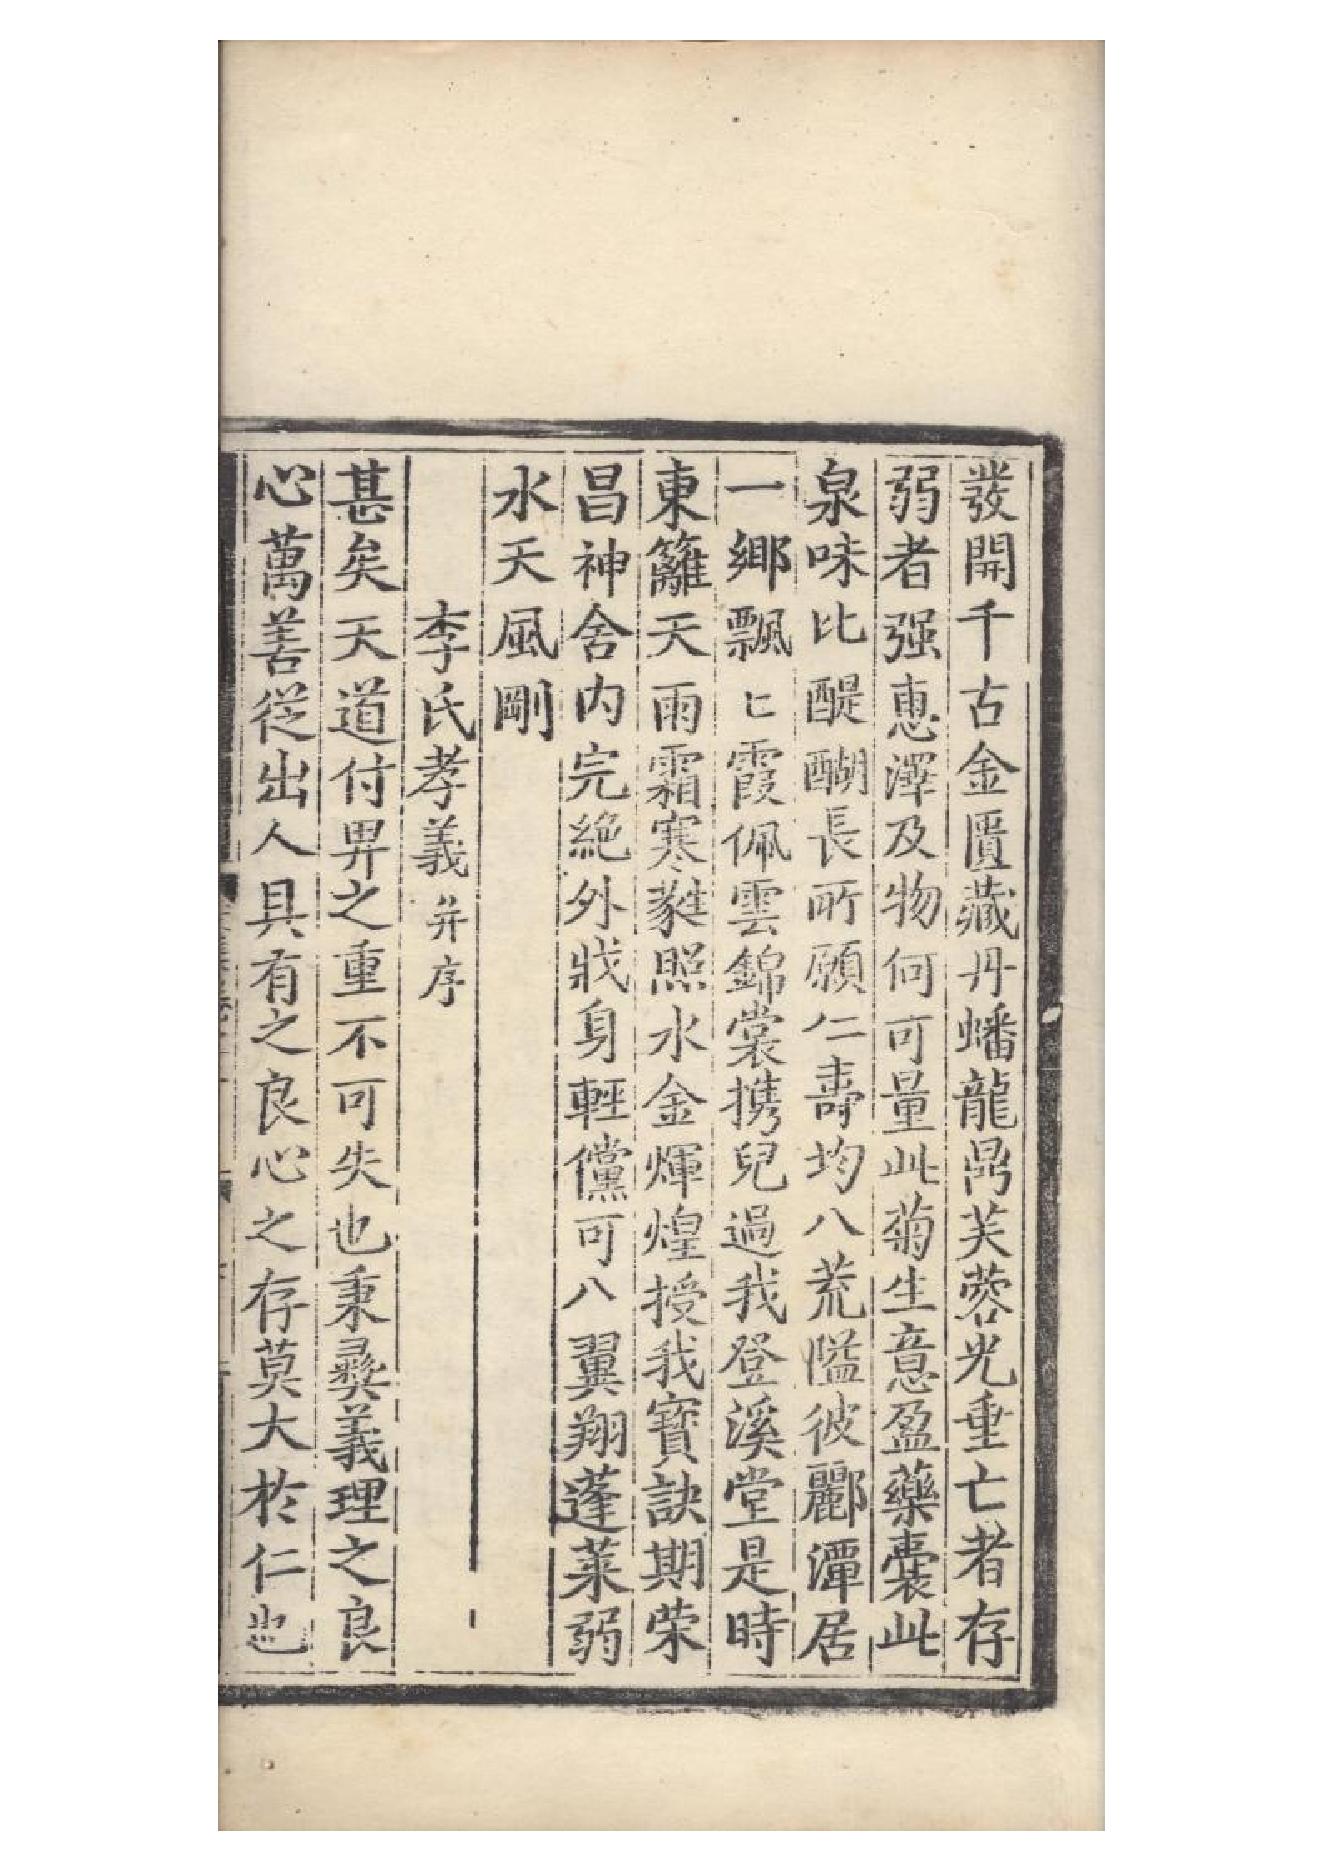 發開千古金匱藏丹蟠龍鼎芙蓉光重亡者存
弱者强惠澤及物何可量此菊生意盈藥囊此
泉味比醍醐長所願仁壽均八荒隘彼酈潭居
一鄉飄匕霞佩雲錦裳携兒過我登溪堂是時
東籬天雨霜寒蕤照水金煇煌授我寶訣期荣
昌神舍内完絶外戕身輕儻可八翼翔蓬萊弱
水天風剛
李氏孝義并序
甚矣天道付畀之重不可失也秉彛義理之良
心萬善從出人具有之良心之存莫大於仁也